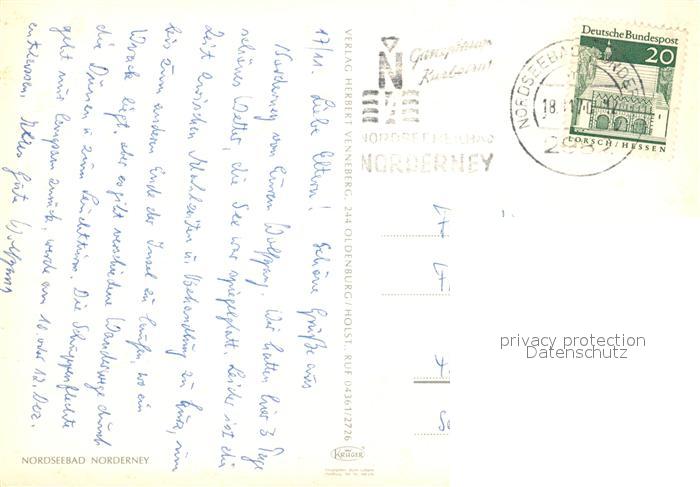 17/11. Liebe Eltern! Schöne Grüße aus
Norderney von Eurem Wolfgang. Wir hatten hier 3 Tage
schönes Wetter, die See war spiegelglatt. Leider ist die
Zeit zwischen Mahlzeiten u. Behandlung zu kurz, um
bis zum anderen Ende der Insel zu laufen, wo ein
Wrack liegt, aber es gibt verschiedene Wanderwege durch
die Dünen u. zum Leuchtturm. Die Schuppenflechte
geht nur langsam zurück, werde am 10. oder 12. Dez.
entlassen. Alles Gute Wolfgang
NORDSEEBAD NORDERNEY
VERLAG HERBERT VENNEBERG, 244 OLDENBURG/HOLST. RUF 04361/2726
KRÜGER
N
NORDSEEHEILBAD
NORDERNEY
NORDSEEBAD
18.11.
2982
Deutsche Bundespost
20
LORSCH/HESSEN
privacy protection
Datenschutz